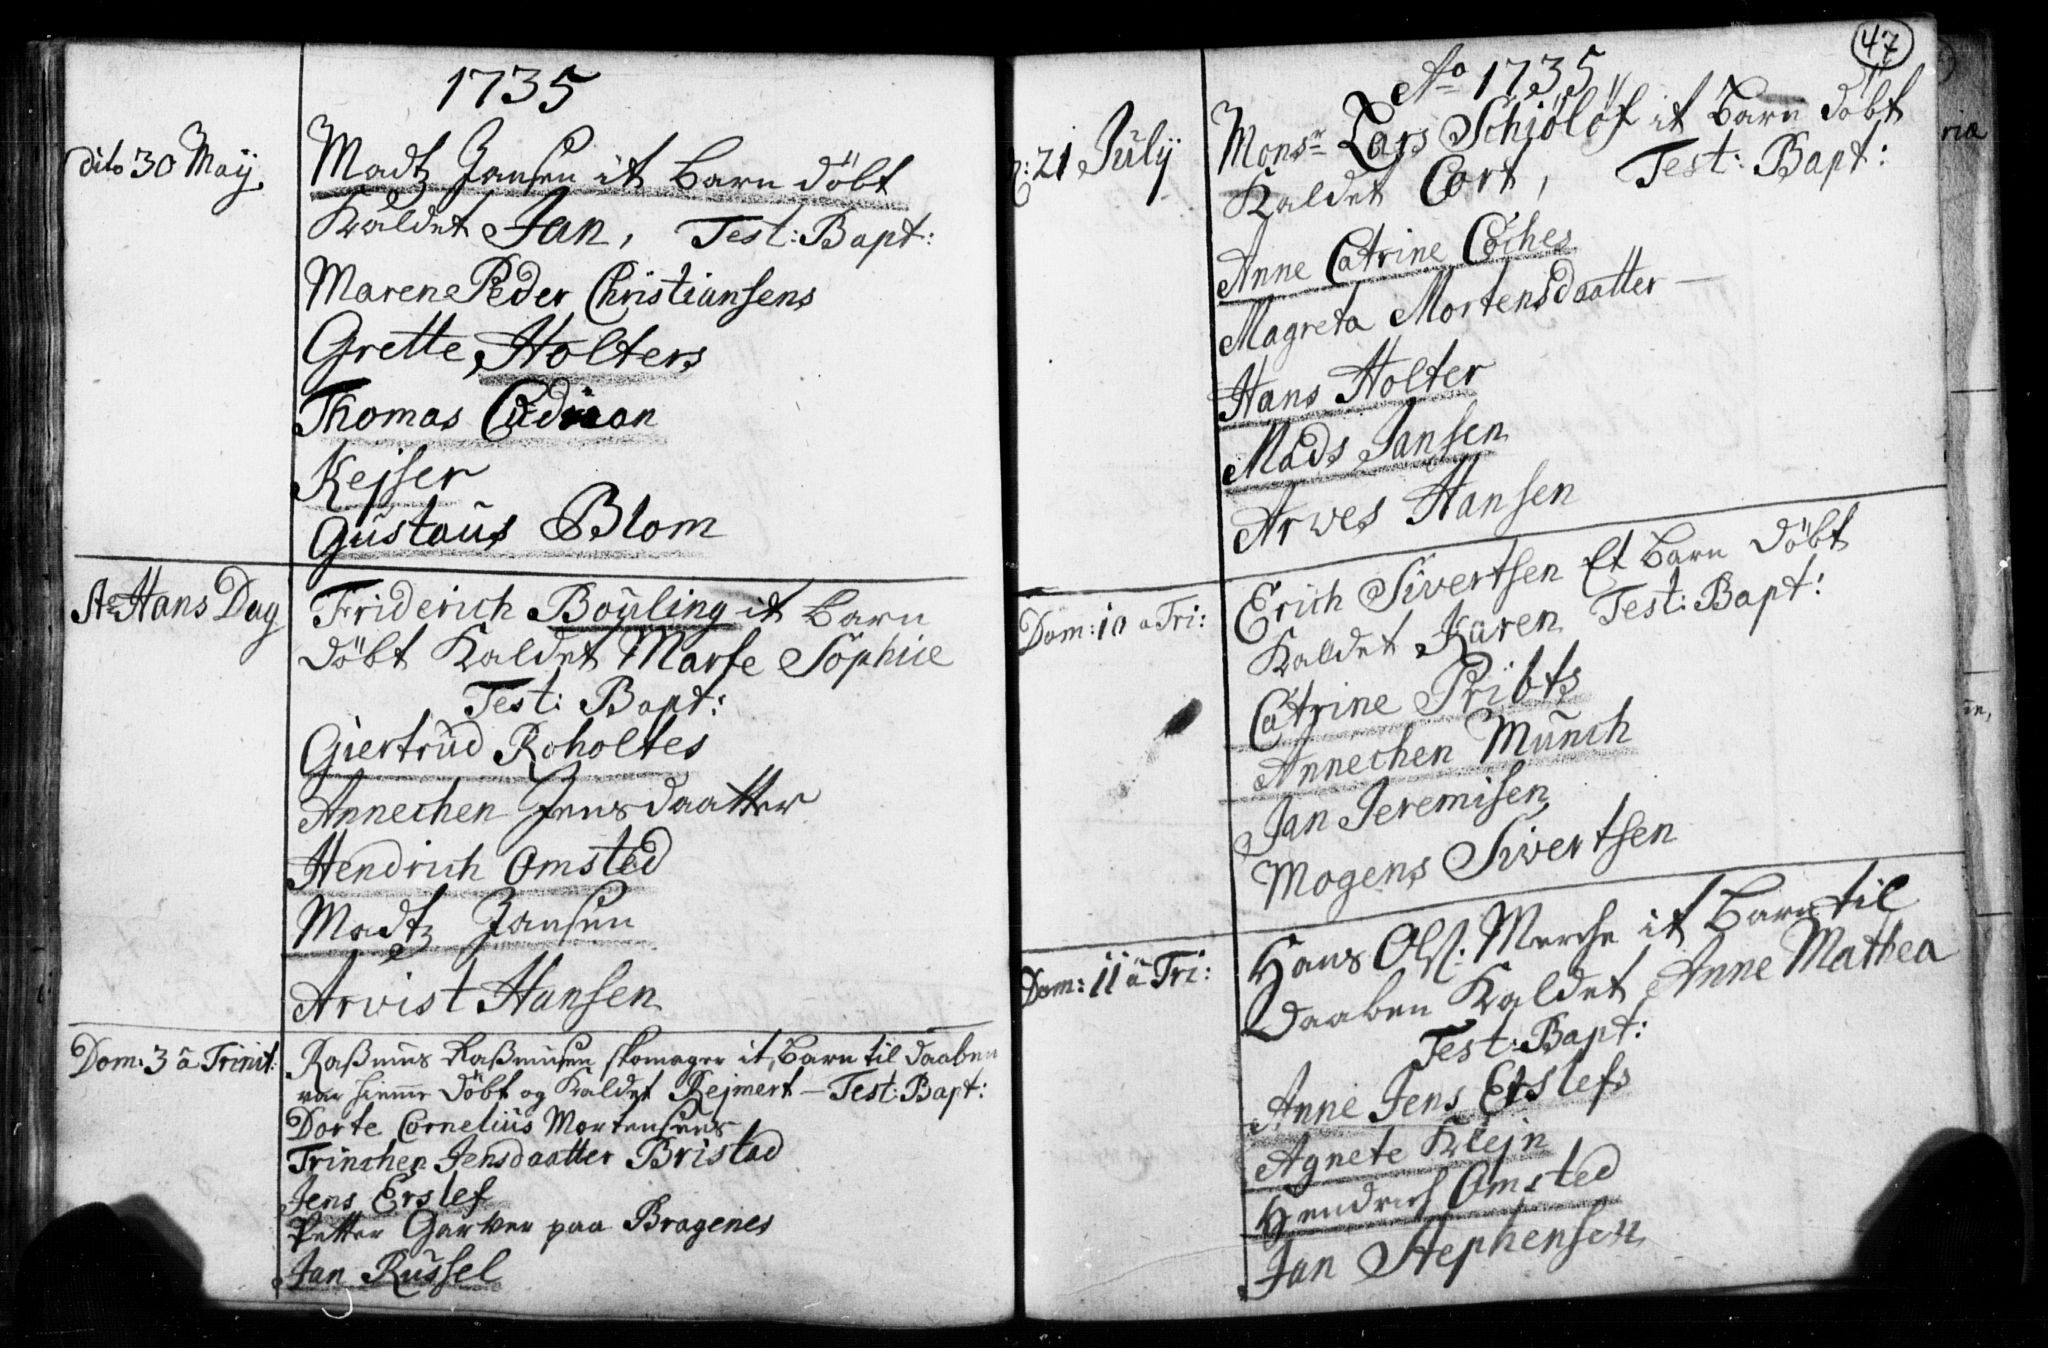 1735
dito 30 Maÿ
Madtz Jansen it barn döbt
Kaldet Jan, Test: Bapt:
Maren Peder Christiansens
Grette Holters
Thomas
Kejser
Gustaus Blom
St Hans Dag
Friderich Bouling it barn
döbt Kaldet Marfe Sophie
Test: Bapt:
Giertrud Roholtes
Annechen Jensdaatter
Hendrich Omsted
Madtz Jansen
Arvist Hansen
Dom: 3 á Trinit:
Raßmus Raßmusen skomager it barn til daaben
var hieme döbt og Kaldet Rejmert – Test: Bapt:
Dorte Cornelius Mortensens
Trinchen Jensdaatter Bristad
Jens Erslef
Petter Garver paa Bragenes
Jan Russel
47
Ao 1735
21 Julÿ
Monsr Lars Schiölöf it barn döbt
Kaldet Cort, Test: Bapt:
Anne Catrine Coches
Magreta Mortensdaatter –
Hans Holter
Mads Jansen
Arwes Hansen
Dom: 10 a Tri:
Erich Sivertsen Et barn döbt
Kaldet Karen Test: Bapt:
Catrine Pribts
Annechen Munch
Jan Jeremisen
Mogens Sivertsen
Dom: 11 á Tri:
Hans Olß: Merche it barn til
daaben Kaldet Anne Mathea
Test: Bapt:
Anne Jens Erslefs
Agnete Klejn
Hendrich Omsted
Jan Stephensen